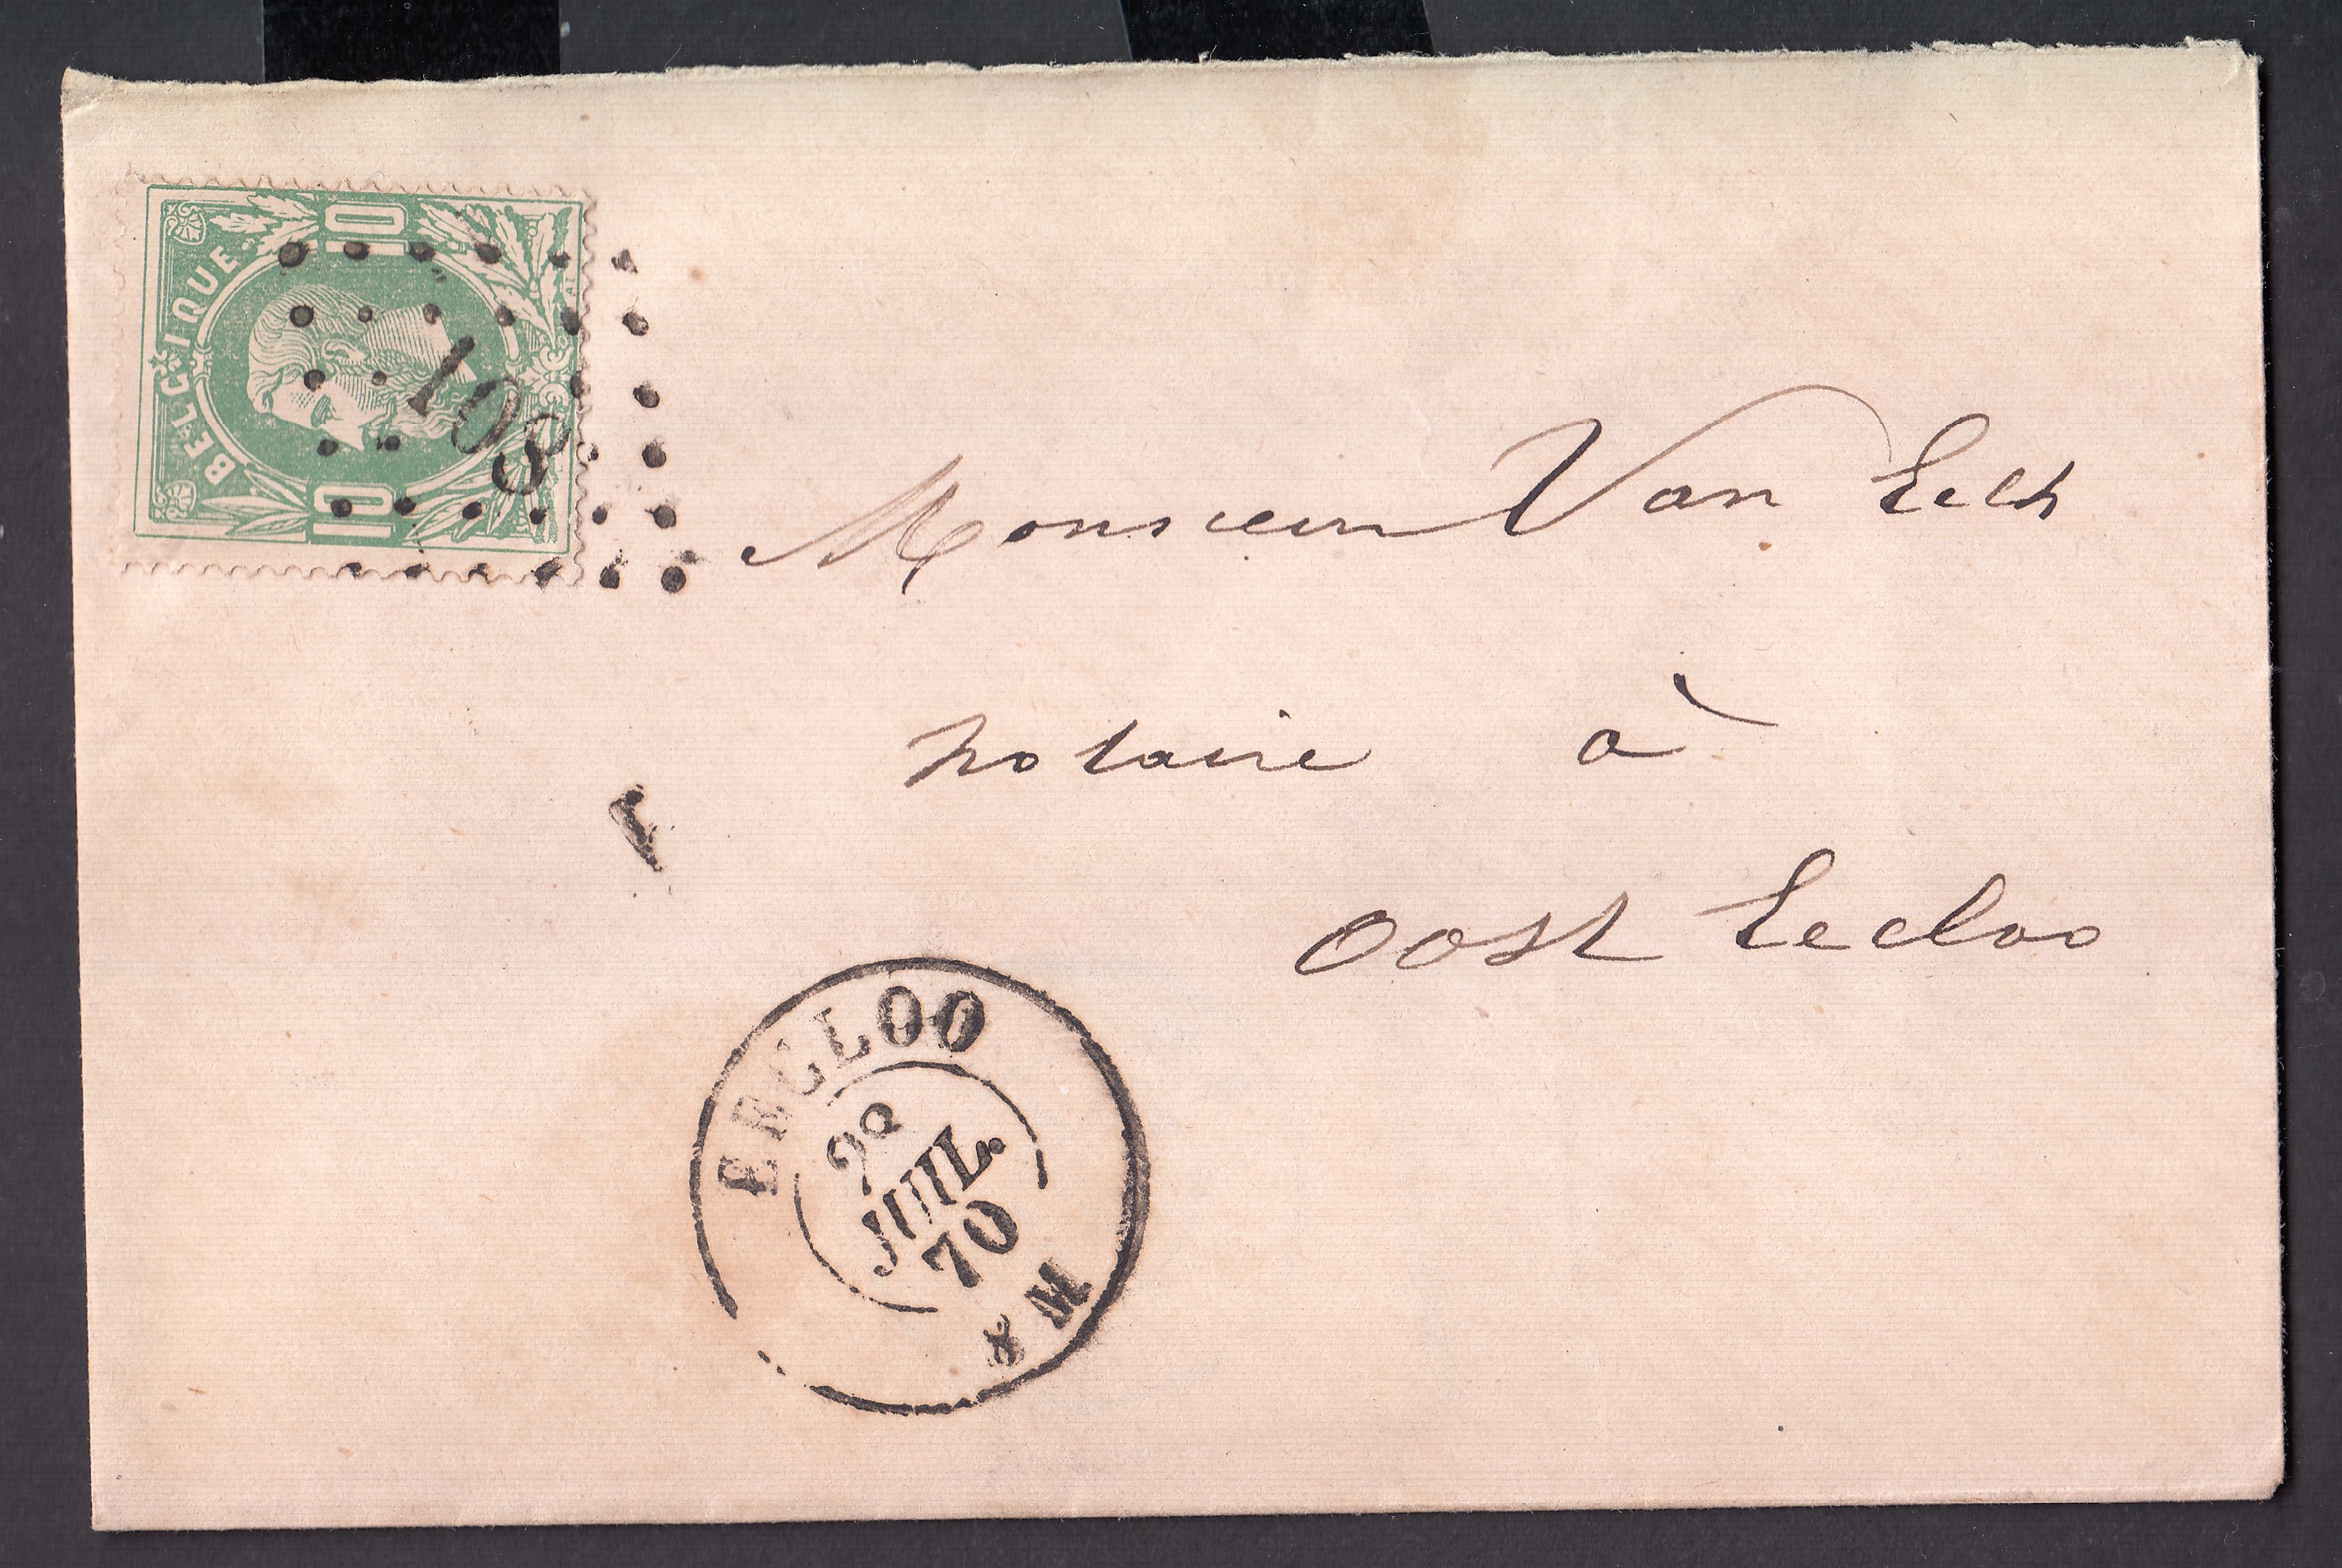 BELGIQUE
10
10
108
Monsieur Van Eecke
notaire à
Oost Eecloo
EECLOO
JUIL.
70
M